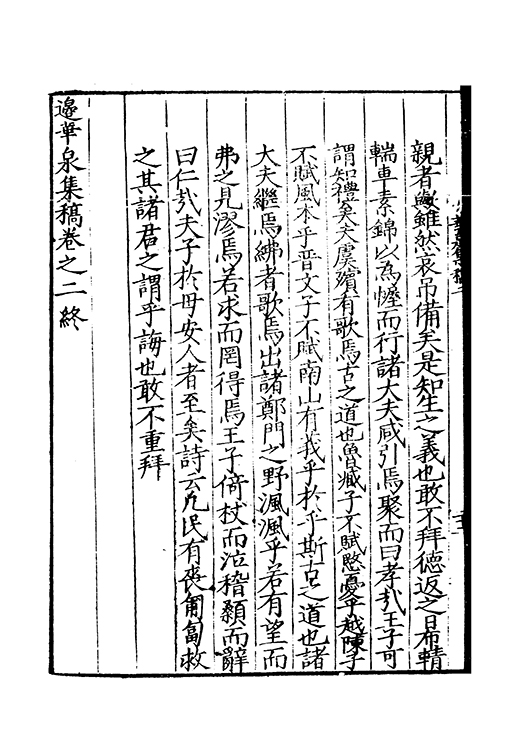 親者歟雖然哀吊備矣是知生之義也敢不拜德返之日布精
輲車素錦以為幄而行諸大夫咸引焉聚而曰孝㢤王子可
謂知禮矣夫虞殯有歌焉古之道也魯臧子不賦愍憂乎越陳子
不賦風本乎晋文子不賦南山有莪乎於乎斯古之道也諸
大夫繼焉紼者歌焉出諸鄭門之野渢渢乎若有望而
弗之見漻焉若求而罔得焉王子倚杖而泣稽顙而辭
曰仁㢤夫子於毋安人者至矣詩云凡民有喪匍匐救
之其諸君之謂乎誨也敢不重拜
邊華泉集稿卷之二終